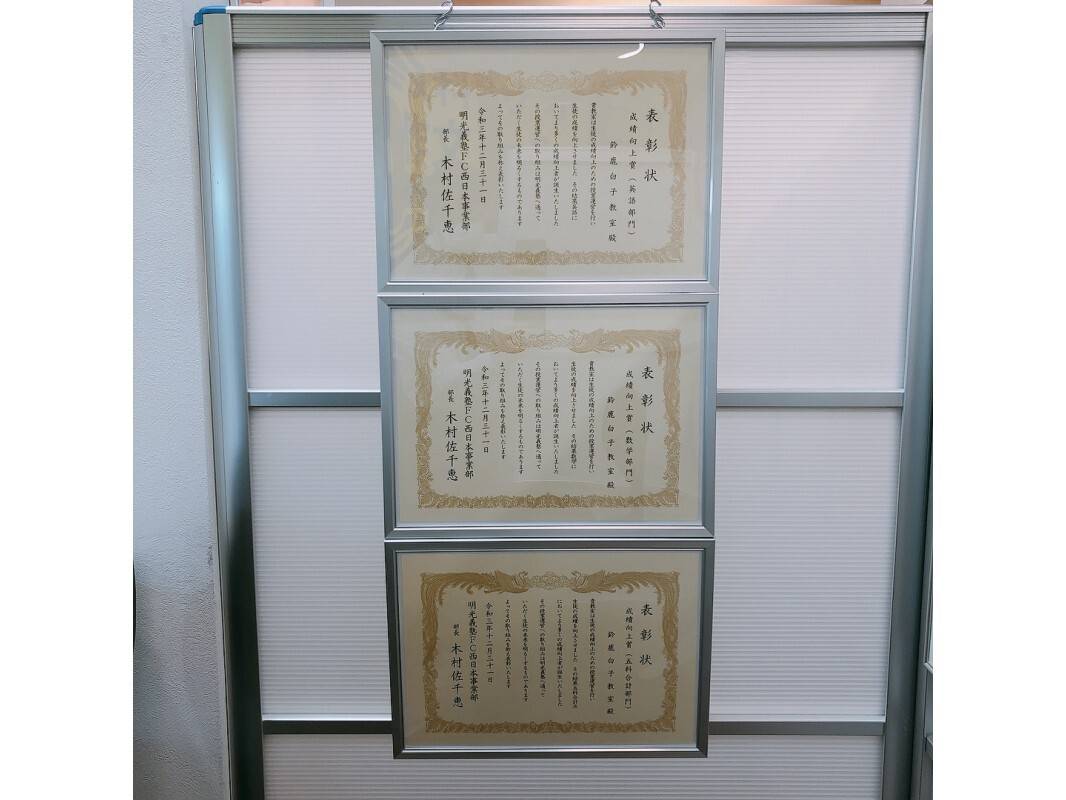 表彰状
成績向上賞(英語部門)
鈴鹿白子教室殿
貴教室は生徒の成績向上のための授業運営を行い
生徒の成績を向上させました その結果英語に
おいてより多くの成績向上者が誕生いたしました
その授業運営への取り組みは明光義塾へ通って
いただく生徒の未来を明るくするものであります
よってその取り組みを称え表彰いたします
令和三年十二月三十一日
明光義塾FC西日本事業部
部長 木村佐千恵
表彰状
成績向上賞(数学部門)
鈴鹿白子教室殿
貴教室は生徒の成績向上のための授業運営を行い
生徒の成績を向上させました その結果数学に
おいてより多くの成績向上者が誕生いたしました
その授業運営への取り組みは明光義塾へ通って
いただく生徒の未来を明るくするものであります
よってその取り組みを称え表彰いたします
令和三年十二月三十一日
明光義塾FC西日本事業部
部長 木村佐千恵
表彰状
成績向上賞(五科合計部門)
鈴鹿白子教室殿
貴教室は生徒の成績向上のための授業運営を行い
生徒の成績を向上させました その結果五科合計点
においてより多くの成績向上者が誕生いたしました
その授業運営への取り組みは明光義塾へ通って
いただく生徒の未来を明るくするものであります
よってその取り組みを称え表彰いたします
令和三年十二月三十一日
明光義塾FC西日本事業部
部長 木村佐千恵